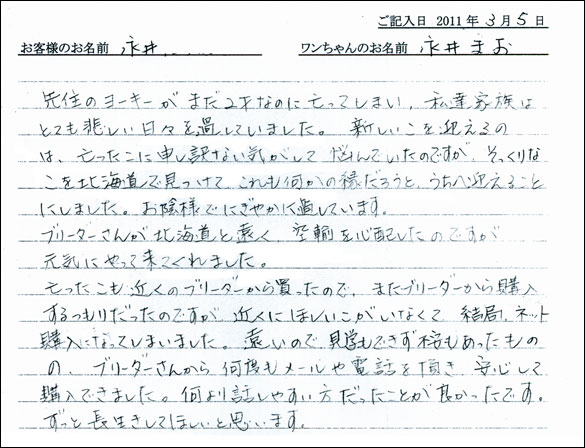 ご記入日 2011年3月5日
お客様のお名前 永井 ワンちゃんのお名前 永井まお
先住のヨーキーがまだ2才なのに亡ってしまい、私達家族は
とても悲しい日々を過していました。 新しいこを迎えるの
は、亡ったこに申し訳ない気がして 悩んでいたのですが、そっくりな
こを北海道で見つけて、これも何かの縁だろうと、うちへ迎えること
にしました。お陰様でにぎやかに過しています。
ブリーダーさんが北海道と遠く、空輸を心配したのですが
元気にやって来てくれました。
亡ったこも近くのブリーダーから買ったので、またブリーダーから購入
するつもりだったのですが、近くにほしいこがいなくて 結局、ネット
購入になってしまいました。遠いので、見学もできず不安もあったもの
の、ブリーダーさんから、何度もメールや電話を頂き、安心して
購入できました。何より話しやすい方だったことが良かったです。
ずっと長生きしてほしいと思います。